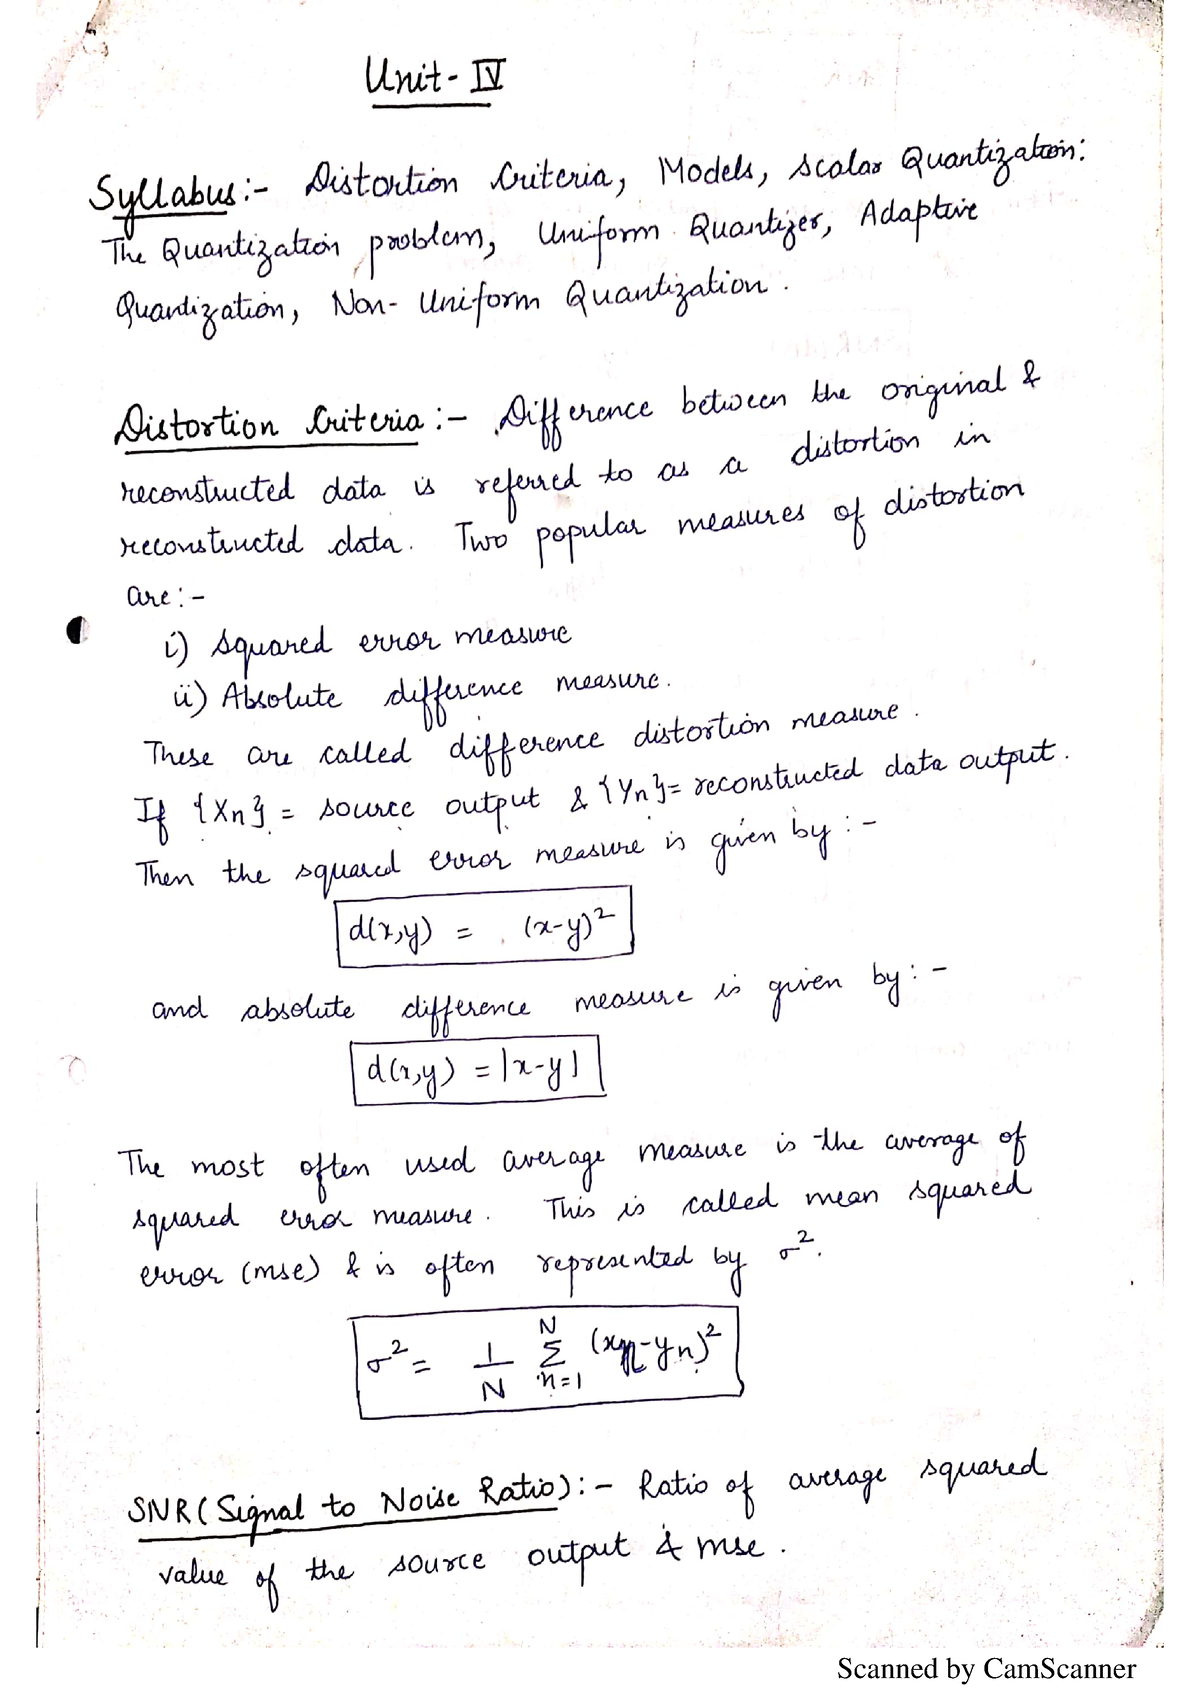 Unit - IV
Syllabus:- Distortion Criteria, Models, Scalar Quantization:
The Quantization problem, Uniform Quantizer, Adaptive
Quantization, Non-Uniform Quantization.
Distortion Criteria :- Difference between the original &
reconstructed data is referred to as a distortion in
reconstructed data. Two popular measures of distortion
are :-
i) Squared error measure
ii) Absolute difference measure.
These are called difference distortion measure.
If {Xn} = source output & {Yn} = reconstructed data output.
Then the squared error measure is given by :-
d(x,y) = (x-y)²
and absolute difference measure is given by :-
d(x,y) = |x-y|
The most often used average measure is the average of
squared error measure. This is called mean squared
error (mse) & is often represented by σ².
σ² = 1/N Σ_{n=1}^{N} (xn-yn)²
SNR (Signal to Noise Ratio) :- Ratio of average squared
value of the source output & mse.
Scanned by CamScanner